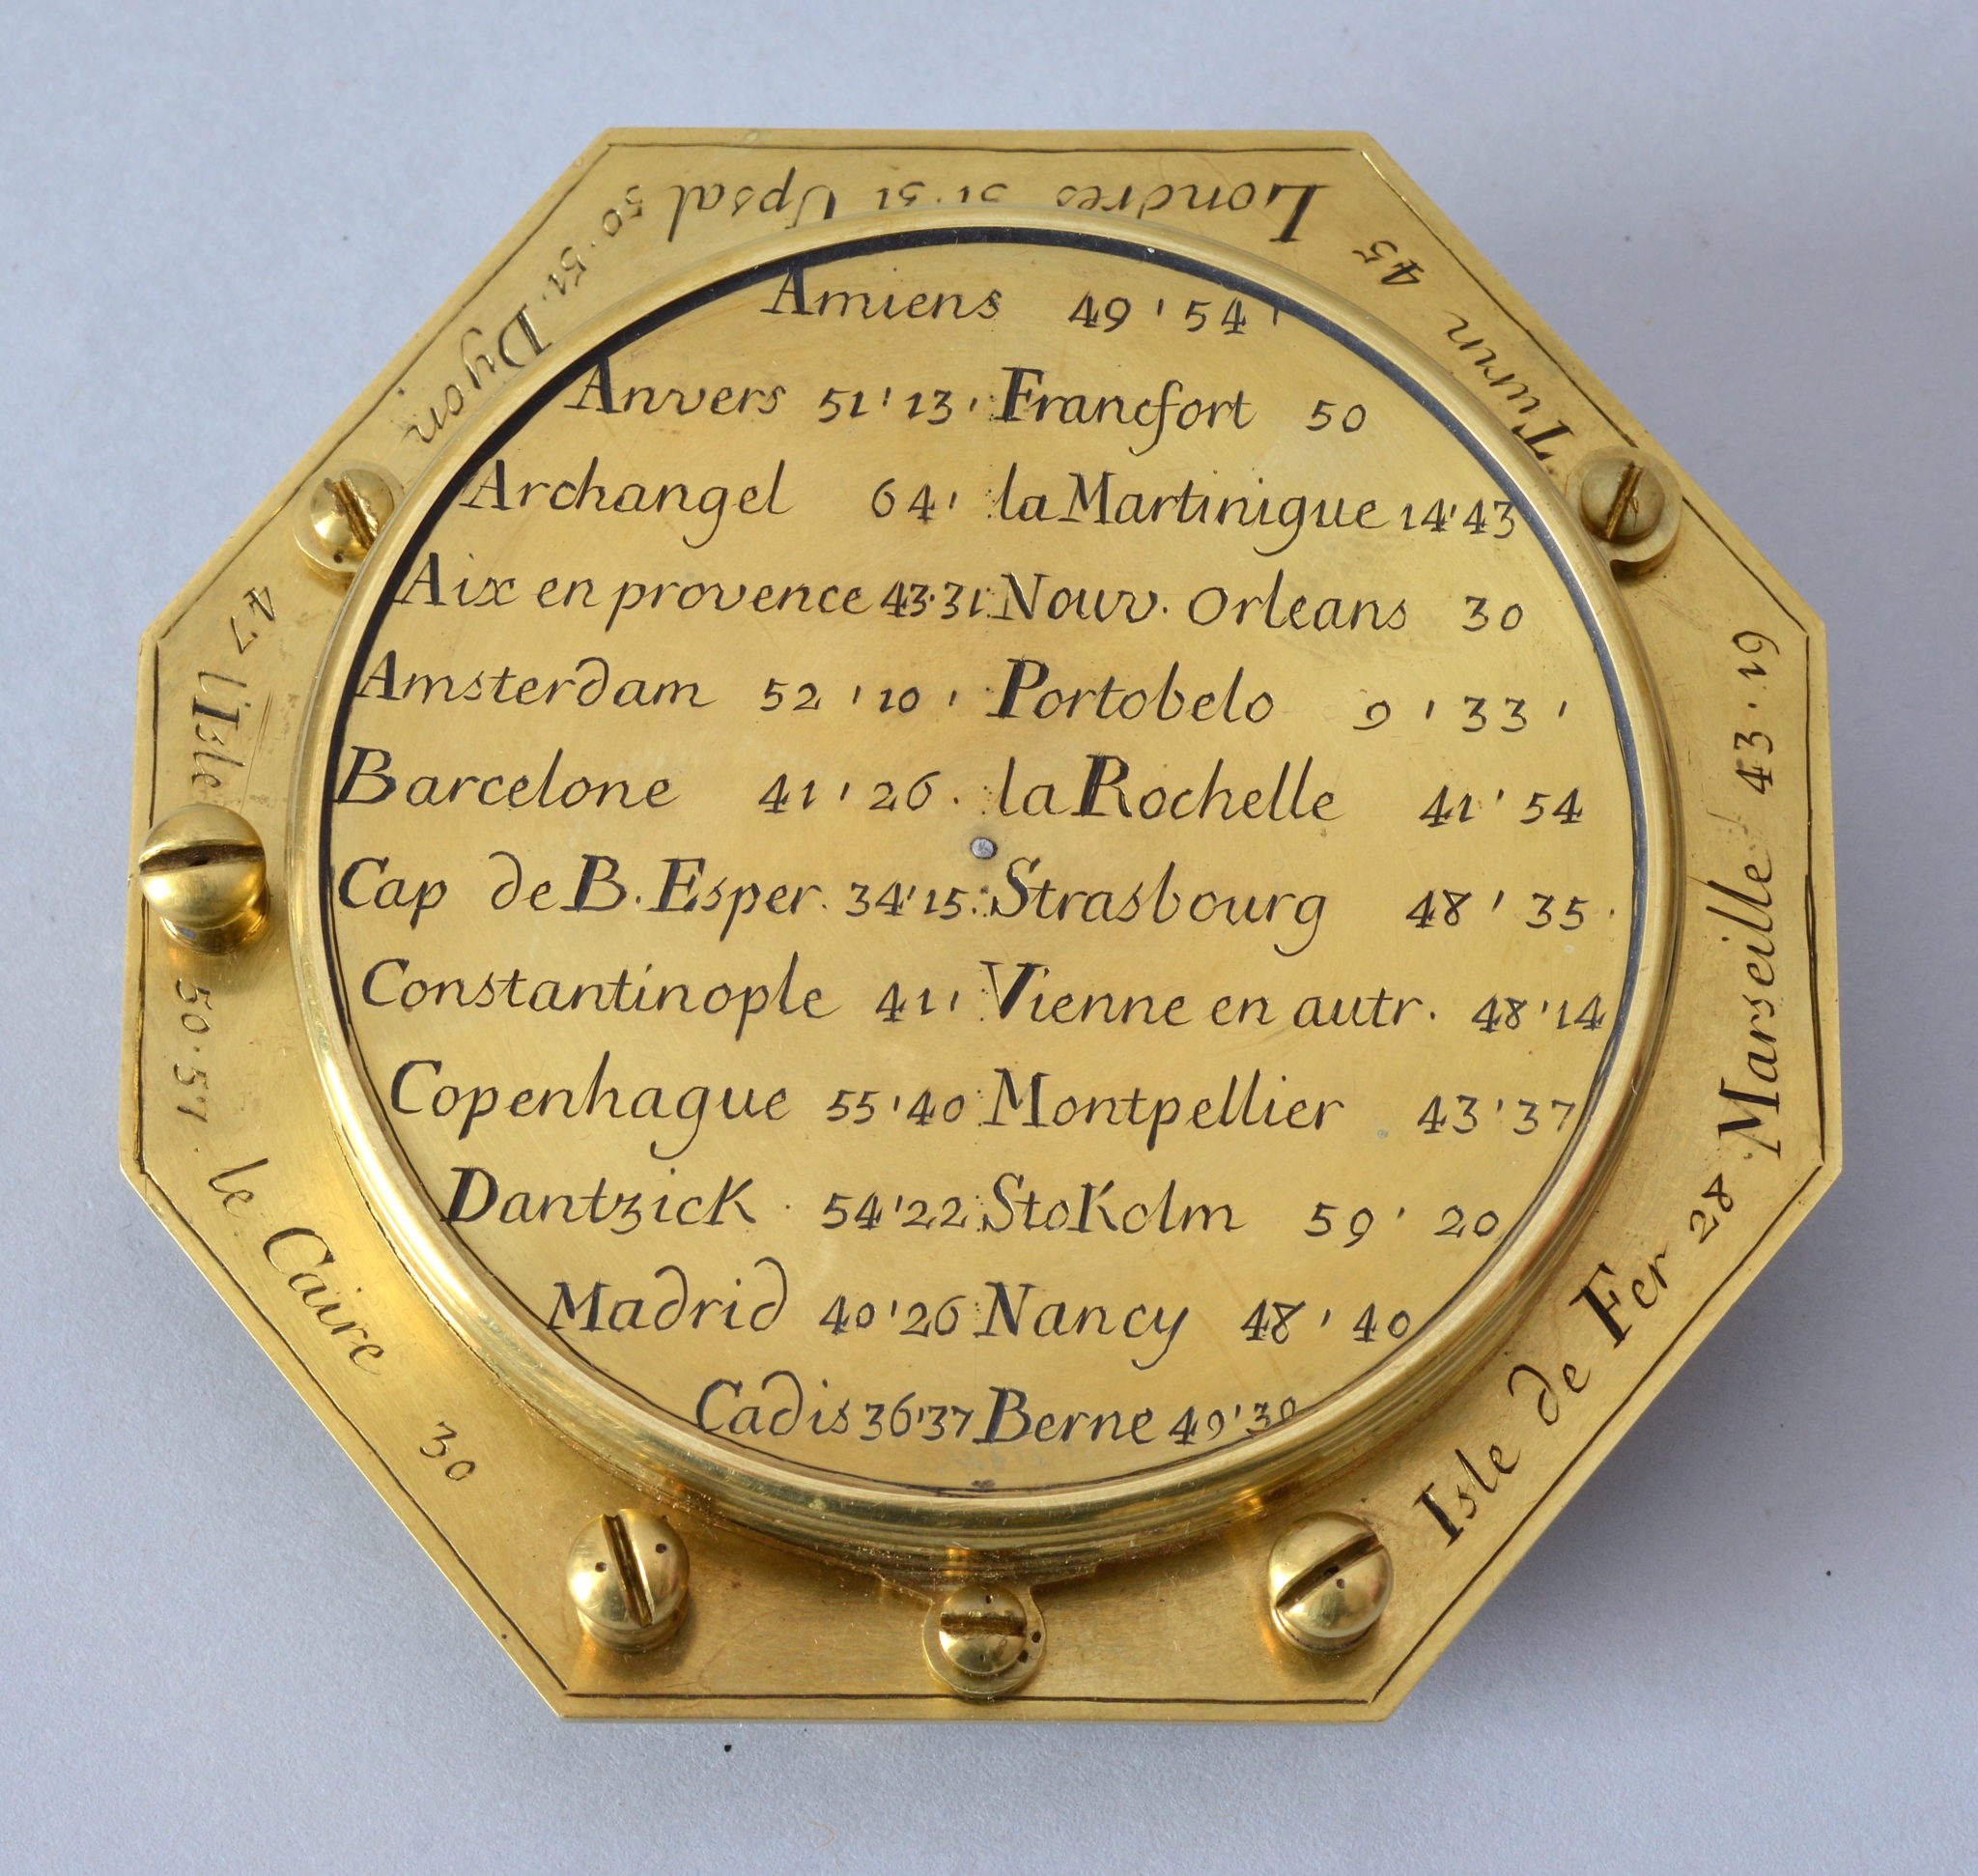 Amiens 49'54'
Anvers 51'13' Francfort 50
Archangel 64' la Martinigue 14'43
Aix en provence 43·31 Nouv. Orleans 30
Amsterdam 52'10' Portobelo 9'33'
Barcelone 41'26. la Rochelle 41'54
Cap de B. Esper. 34'15 Strasbourg 48'35
Constantinople 41' Vienne en autr. 48'14
Copenhague 55'40 Montpellier 43'37
Dantzick 54'22 StoKolm 59'20
Madrid 40'26 Nancy 48'40
Cadis 36'37 Berne 49'30
Londres 51·31 Upsal 50·51·
Dyon 47
L'Isle 50·57·
le Caire 30
Isle de Fer 28
Marseille 43·19
Turin 45